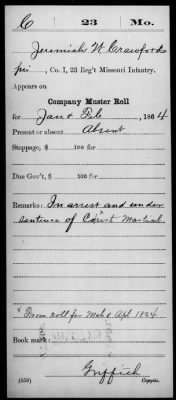 C 23 Mo.
Jeremiah W Crawford
Pri, Co. I, 23 Reg't Missouri Infantry.
Appears on
Company Muster Roll
for Jan & Feb, 1864
Present or absent Absent
Stoppage, $ 100 for
Due Gov't, $ 100 for
Remarks: In arrest and under
sentence of Court Martial.
From roll for Mch & Apl 1864
Book mark:
Griffith
(359) Copyist.